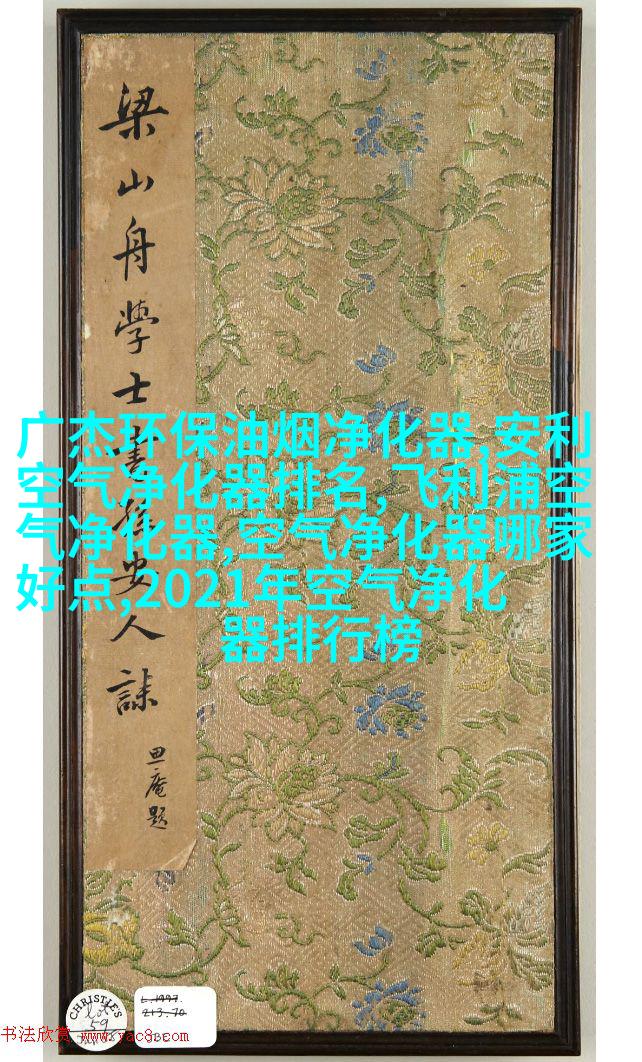 梁山舟學士書安人誄
庵題
广杰环保油烟净化器,安利
空气净化器排名,飞利浦空
气净化器,空气净化器哪家
好点,2021年空气净化
器排行榜
CHRISTIE'S
Lot
59
L.1997.
213.70
书法欣赏 www.yac8.com